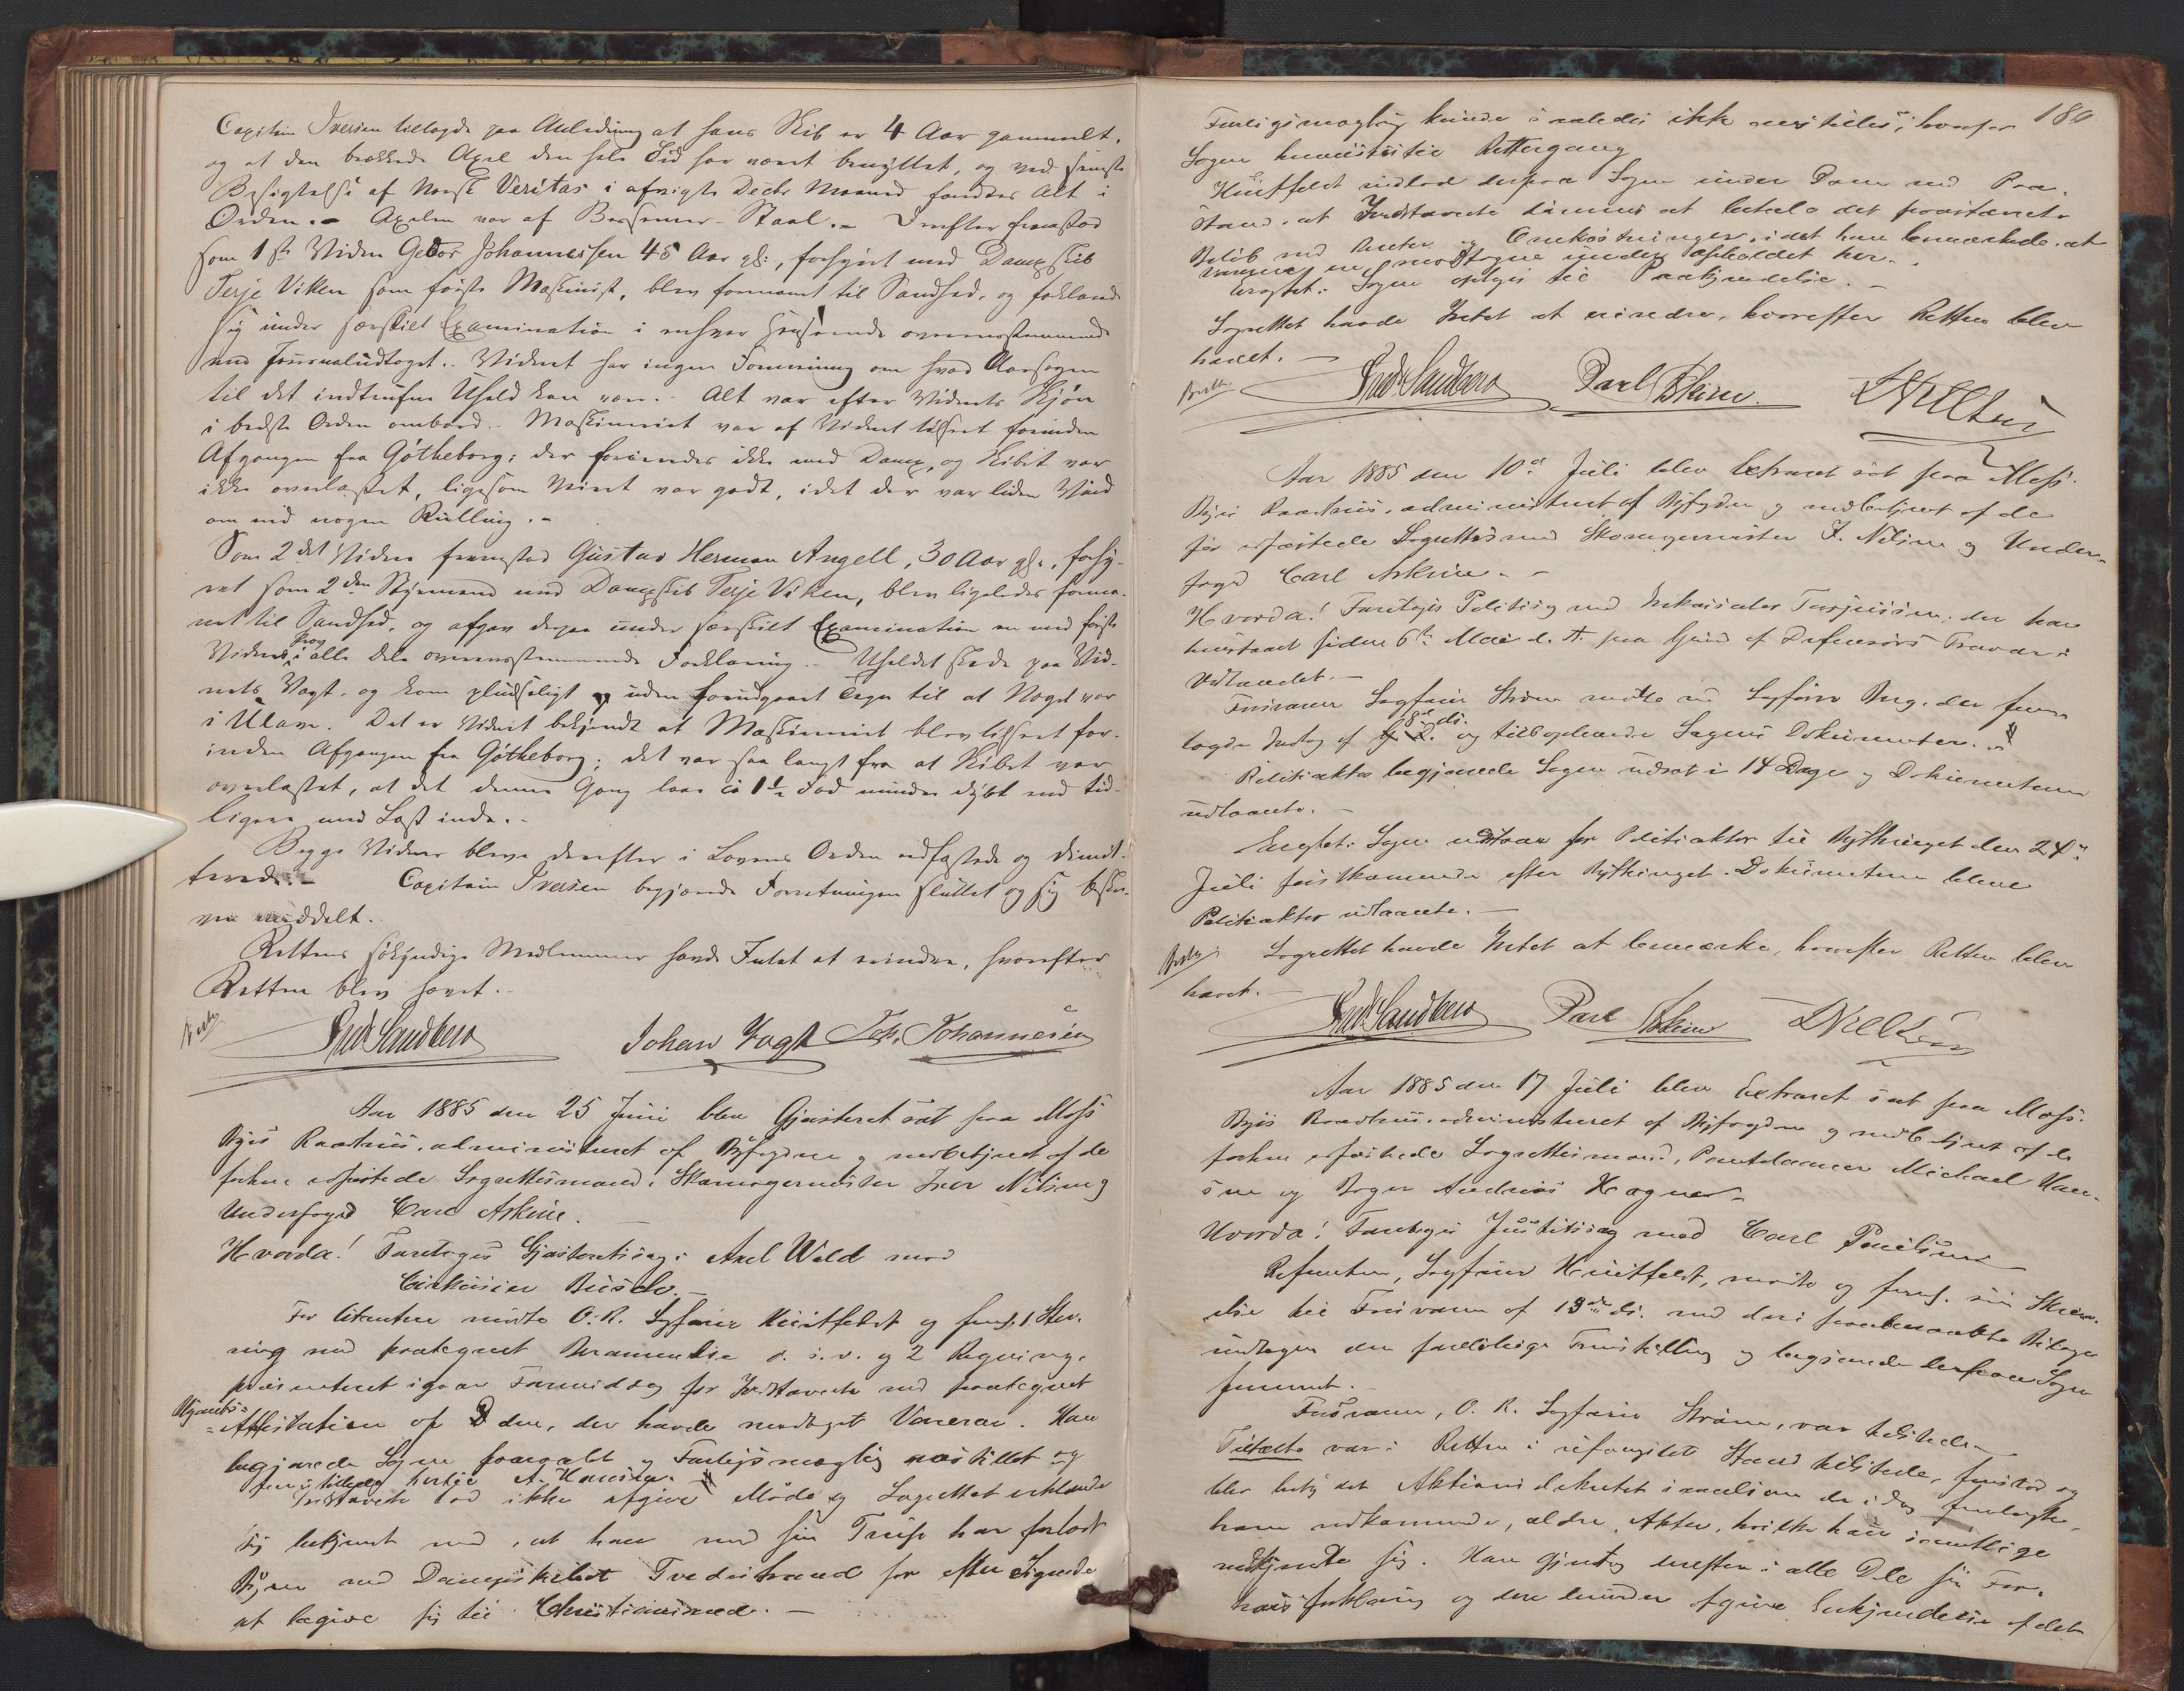 Capitain Iversen tilføyde paa Anledning at hans Skib er 4 Aar gammelt,
og at den brækkede Axel den hele Tid har været benyttet, og ved seneste
Besigtelse af Norsk Veritas i afvigte Decbr Maaned fandtes Alt i
Orden. - Axelen var af Bessemer-Staal. - Derefter fremstod
som 1ste Vidne Johannessen 45 Aar gl:, forhyret med Dampskib
Terje Viken som første Maskinist, blev formanet til Sandhed, og forklarede
sig under særskilt Examination i enhver Henseende overensstemmende
med Journaludtoget. Vidnet har ingen Formening om hvad Aarsagen
til det indtrufne Uheld kan være. - Alt var efter Vidnets Skjøn
i bedste Orden ombord. Maskineriet var af Vidnet efterseet forinden
Afgangen fra Gøtheborg; der forcerdes ikke med Damp, og Skibet var
ikke overlastet, ligesom Veiret var godt, idet der var liden Vind
om end nogen Rulling. -
Som 2det Vidne fremstod Gustav Herman Angell, 30 Aar gl., forhy-
ret som 2den Styrmand med Dampskib Terje Viken, blev ligeledes forma-
net til Sandhed, og afgav derpaa under særskilt Examination en med første
Vidnes Prov i alle Dele overensstemmende Forklaring. - Uheldet skede paa Vid-
nets Vagt, og kom pludseligt og uden forudgaaet Tegn til at Noget var
i Ulave. Det er Vidnet bekjendt at Maskineriet blev efterseet for-
inden Afgangen fra Gøtheborg; det var saa langt fra at Skibet var
overlastet, at det denne Gang laae ca 1½ Fod mindre dybt end tid-
ligere med Last inde. -
Begge Vidner bleve derefter i Lovens Orden edfæstede og dimit-
terede. - Capitain Iversen begjærede Forretningen sluttet og sig beskre-
ven meddelt.
Rettens søkyndige Medlemmer havde Intet at erindre, hvorefter
Retten blev hævet. -
Fred Sandberg Johan Vogt Joh. Johannesen
Aar 1885 den 25 Juni blev Gjæsteret sat paa Moss
Byes Raadhus, administreret af Byfogden og medbetjent af de
forhen edfæstede Lagrettesmænd, Skomagermester Iver Nilsen og
Underfoged Carl Askim.
Hvorda! Foretoges Gjæsteretssag: Axel Wold mod
Cirkuseier Busch. -
For Citanten mødte O.R. Sagfører Huitfeldt og freml. 1. Stev-
ning med paategnet Berammelse o. s. v. og 2 Regning,
præsenteret igaar Formiddag for Indstævnte med paategnet
Attestation af Den, der havde modtaget Varerne. Han
begjærede Sagen foretaget og Forligsmægling prøvet og
Indstævnte lod ikke afgive Møde og Lagrettet erklærede
sig bekjent med, at han med sin Trup har forladt
Byen med Dampskibet Tvedestrand for efter Sigende
at begive sig til Christianssand. -
180
Forligsmægling kunde saaledes ikke anstilles, hvorfor
Sagen henvistes til Rettergang
Huitfeldt indlod derpaa Sagen under Dom med Paa-
stand, at Indstævnte dømmes at betale det paastævnte
Beløb med Renter og Omkostninger, idet han bemærkede, at
Varerne ere modtagne under Opholdet her.
Eragtet: Sagen optages til Paakjendelse. -
Lagrettet havde Intet at erindre, hvorefter Retten blev
hævet. -
Fred Sandberg Carl Askim. I Nilsen
Aar 1885 den 10de Juli blev Extraret sat paa Moss
Byes Raadhus, administreret af Byfogden og medbetjent af de
før edfæstede Lagrettesmænd Skomagermester I. Nilsen og Under-
foged Carl Askim. -
Hvorda! Foretoges Politisag mod Inkassator Torjussen, der har
henstaaet siden 6te Mai d. A. paa Grund af Defensors Fravær i
Udlandet. -
For ham Sagfører Strøm mødte ved Sagfører Bug, der frem-
lagde Indlæg af 8de ds. og tilbageleverede Sagens Dokumenter.
Politiaktor begjærede Sagen udsat i 14 Dage og Dokumenterne
udlaante. -
Eragtet: Sagen udstaar for Politiaktor til Bythinget den 24de
Juli førstkommende efter Bythinget. Dokumenterne bleve
Politiaktor udlaante. -
Lagrettet havde Intet at bemærke, hvorefter Retten blev
hævet. -
Fred Sandberg Carl Askim I Nilsen
Aar 1885 den 17 Juli blev Extraret sat paa Moss
Byes Raadhus, administreret af Byfogden og medbetjent af de
forhen edfæstede Lagrettesmænd, Pantelaaner Michael Han-
sen og Bager Andreas Wagner -
Hvorda! Foretoges Justitssag mod Carl Paulsen
Referenten, Sagfører Huitfeldt, mødte og freml. sin Skriv-
else til Forsvaren af 13de ds. med deri paaberaabte Bilage
indtagen den foreløbige Fremstilling og begjærede derpaa Sagen
fremmet.
Forsvaren, O. R. Sagfører Strøm, var tilstede. -
Tiltalte var i Retten i ufængslet Stand tilstede, fremstod og
blev betydet Aktionsdekretet samtlige de idag fremlagte,
ham vedkommende, ældre Akter, hvilke han samtlige
vedkjendte sig. Han gjentog derefter i alle Dele sin For-
hørsforklaring og den derunder afgivne Erkjendelse af det